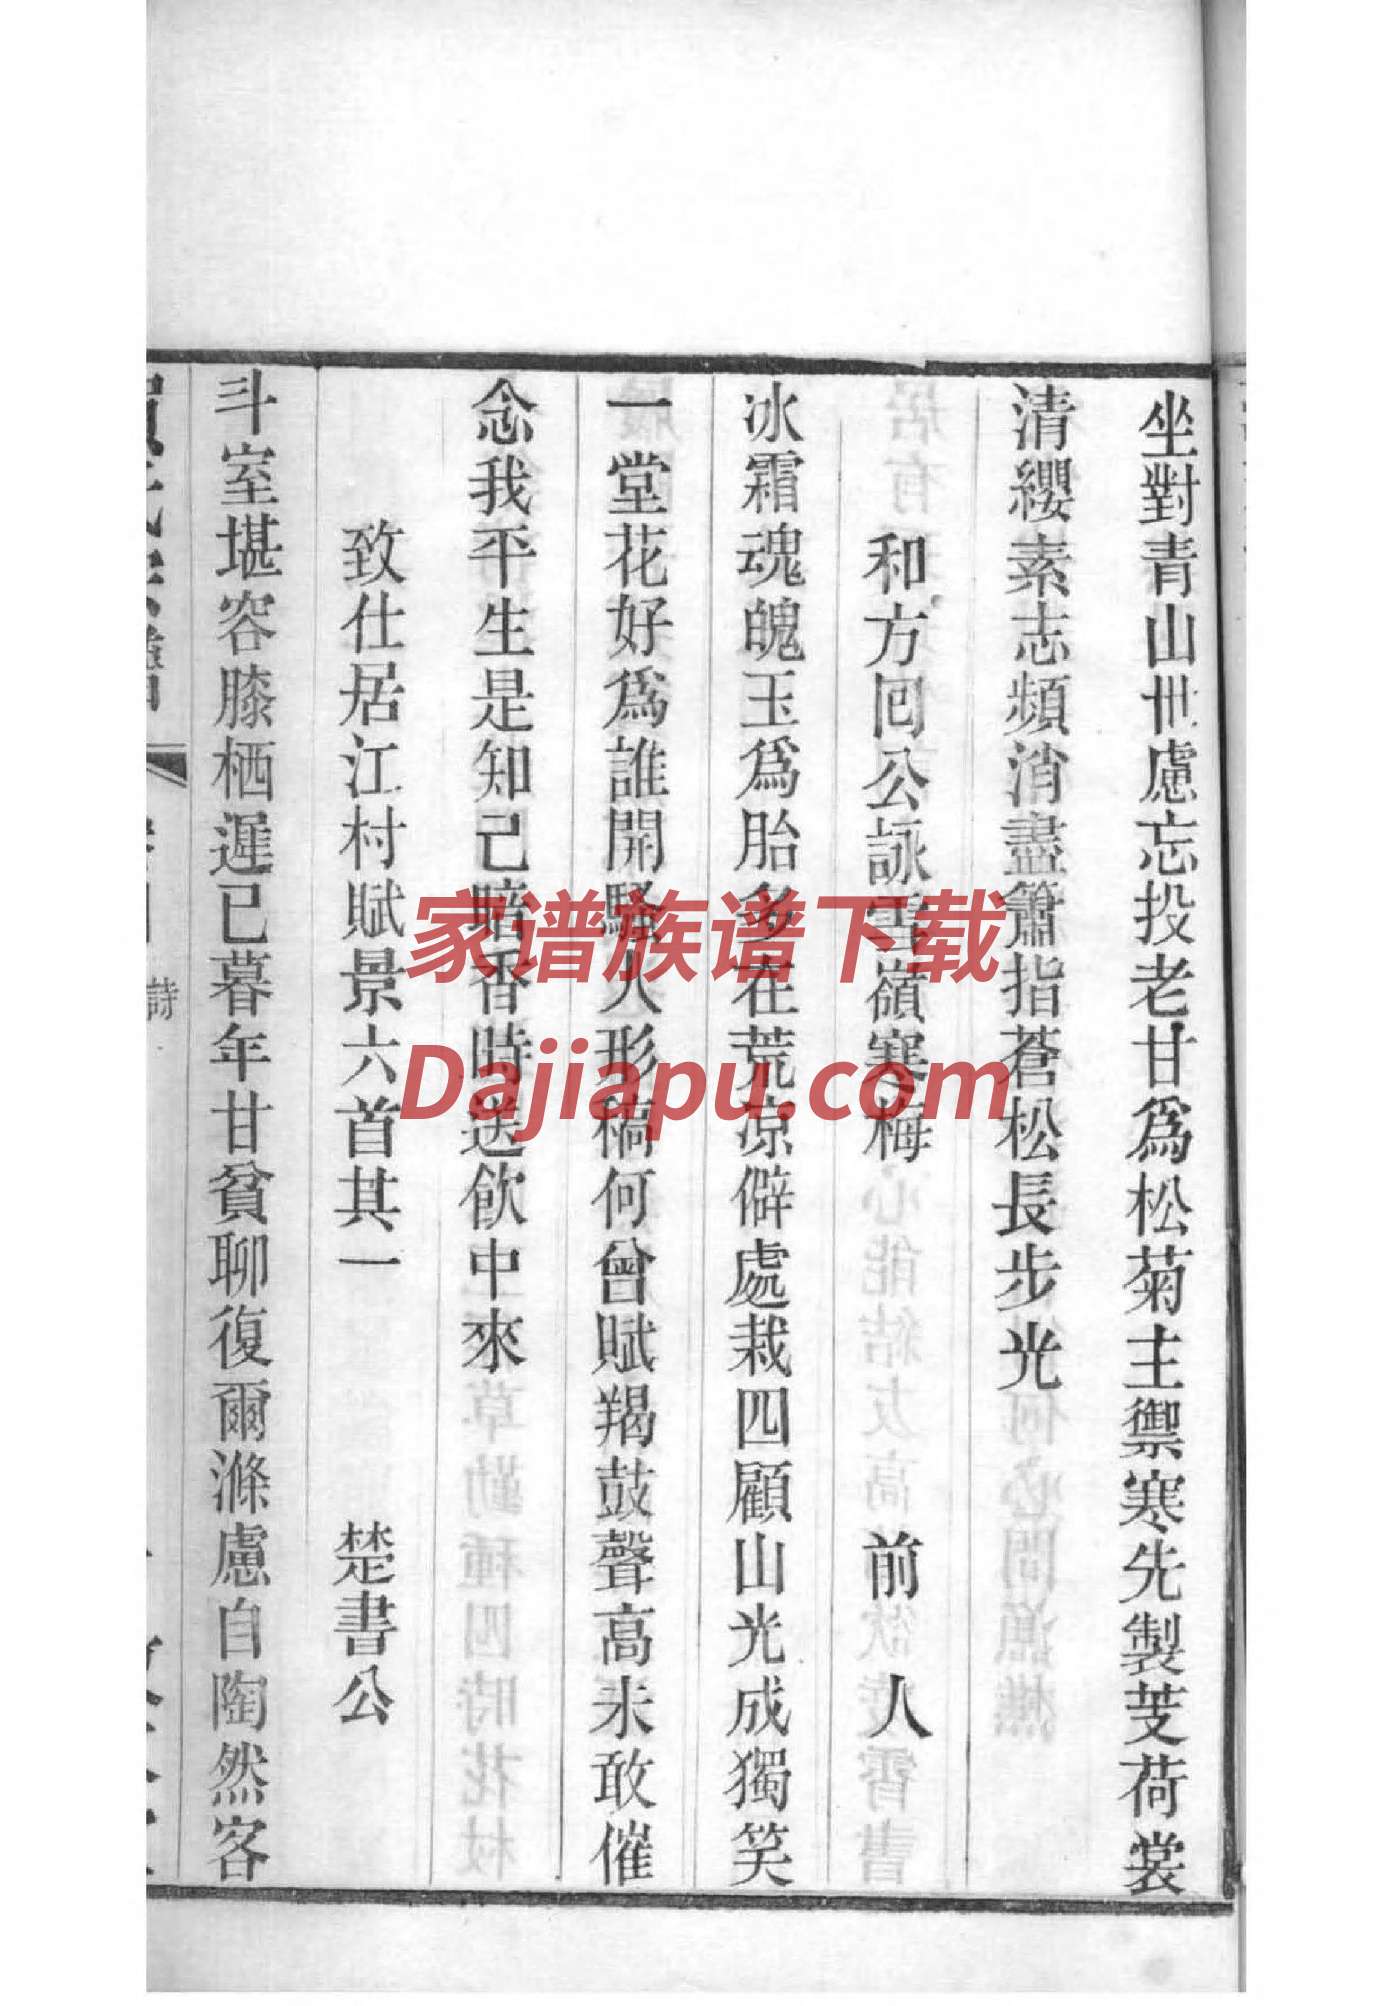 坐對青山世慮忘投老甘爲松菊主禦寒先製芰荷裳
清纓素志頻消盡簫指蒼松長步光
和方回公詠雪嶺寒梅 前人
冰霜魂魄玉爲胎多在荒凉僻處栽四顧山光成獨笑
一堂花好爲誰開騷人形稿何曾賦羯鼓聲高未敢催
念我平生是知己暗香時送飲中來
致仕居江村賦景六首其一 楚書公
斗室堪容膝栖遲已暮年甘貧聊復爾滌慮自陶然客
詩
家谱族谱下载
Dajiapu.com